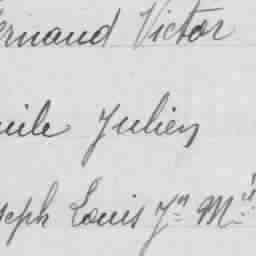 ernand Victor
mile Julien
seph Louis Jn M